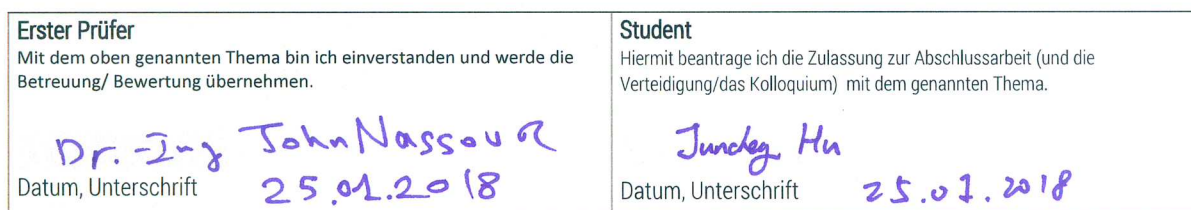 Erster Prüfer
Mit dem oben genannten Thema bin ich einverstanden und werde die
Betreuung/ Bewertung übernehmen.
Dr.-Ing John Nassour
Datum, Unterschrift 25.01.2018
Student
Hiermit beantrage ich die Zulassung zur Abschlussarbeit (und die
Verteidigung/das Kolloquium) mit dem genannten Thema.
Hu
Datum, Unterschrift 25.01.2018